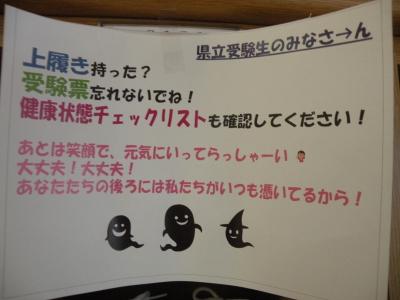 県立受験生のみなさ→ん
上履き持った？
受験票忘れないでね！
健康状態チェックリストも確認してください！
あとは笑顔で、元気にいってらっしゃーい
大丈夫！大丈夫！
あなたたちの後ろには私たちがいつも憑いてるから！